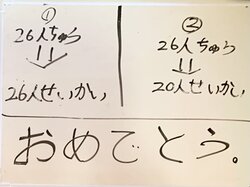 ①
26人ちゅう
26人せいかい
②
26人ちゅう
20人せいかい
おめでとう。